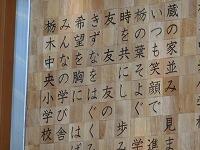 蔵の家並み 見ま
いつも笑顔で 進
栃の葉そよぐ
時を共にし 歩み
友 友 友の
きずなをはぐくみ
希望を胸に はば
みんなの学び舎
栃木中央小学校